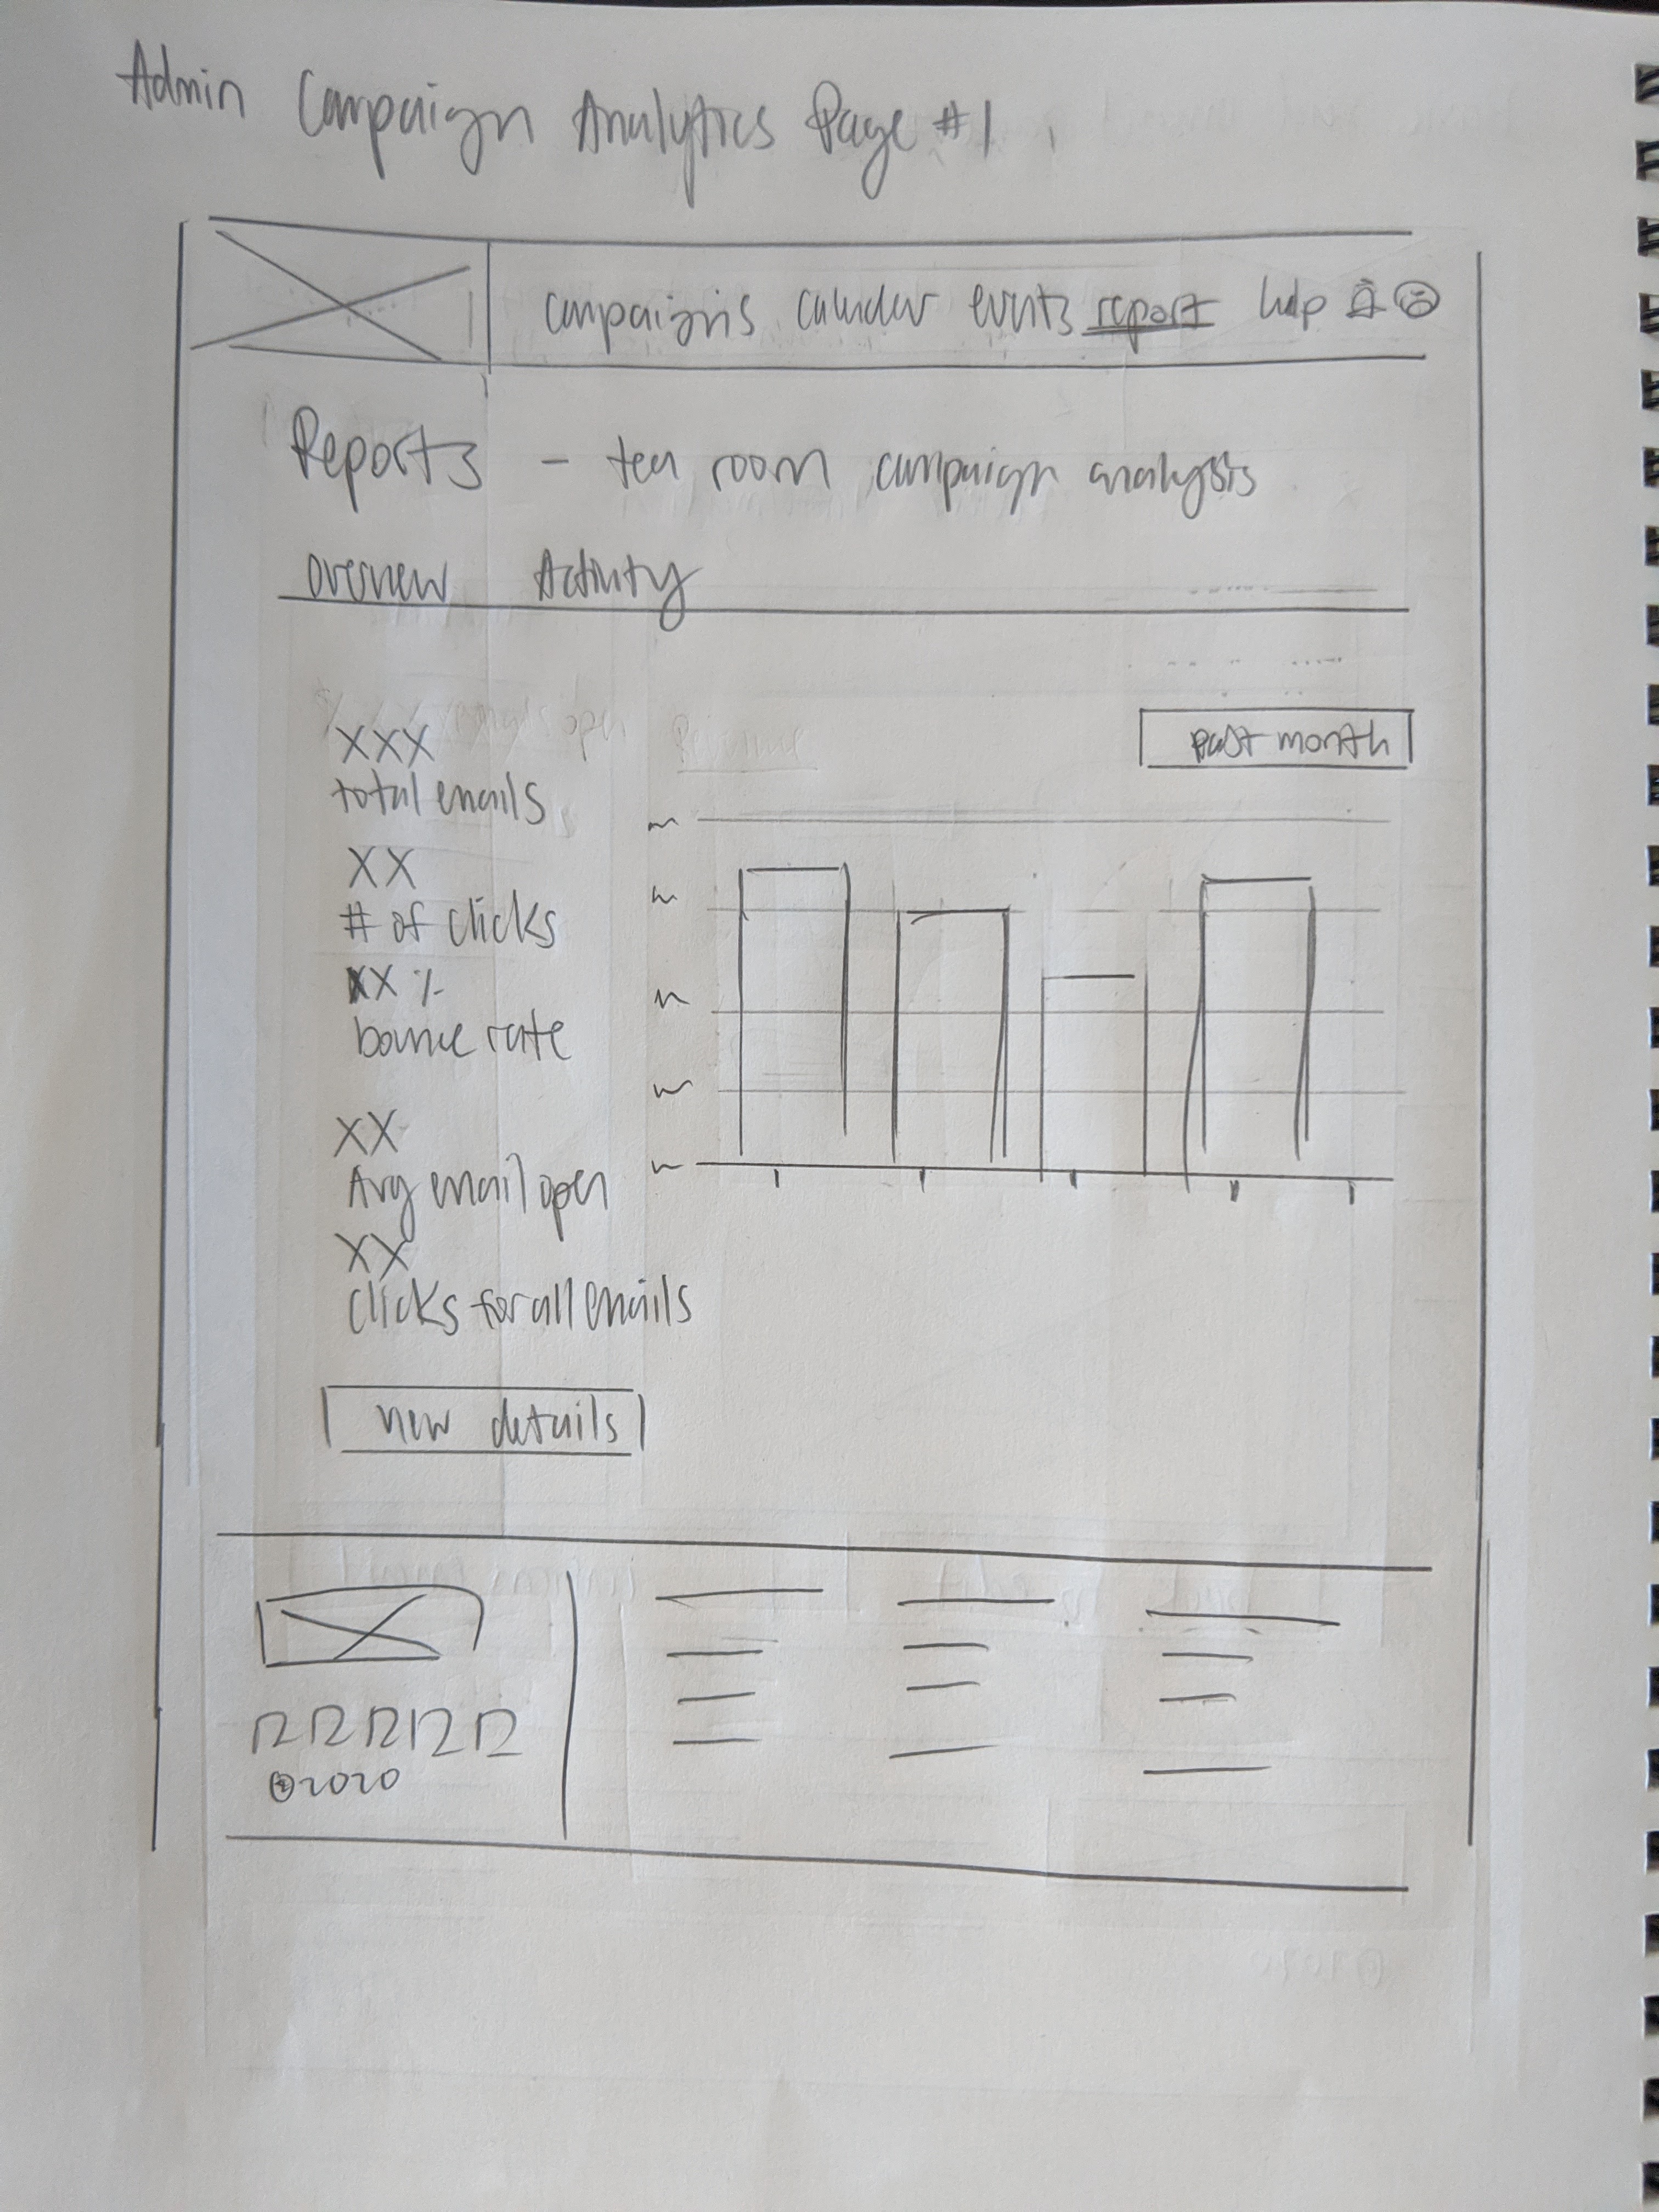 Admin Campaign Analytics Page #1
campaigns calendar events report help
Reports - tea room campaign analysis
overview Activity
past month
XXX
total emails
XX
# of clicks
XX %
bounce rate
XX
Avg email open
XX
clicks for all emails
view details
©2020